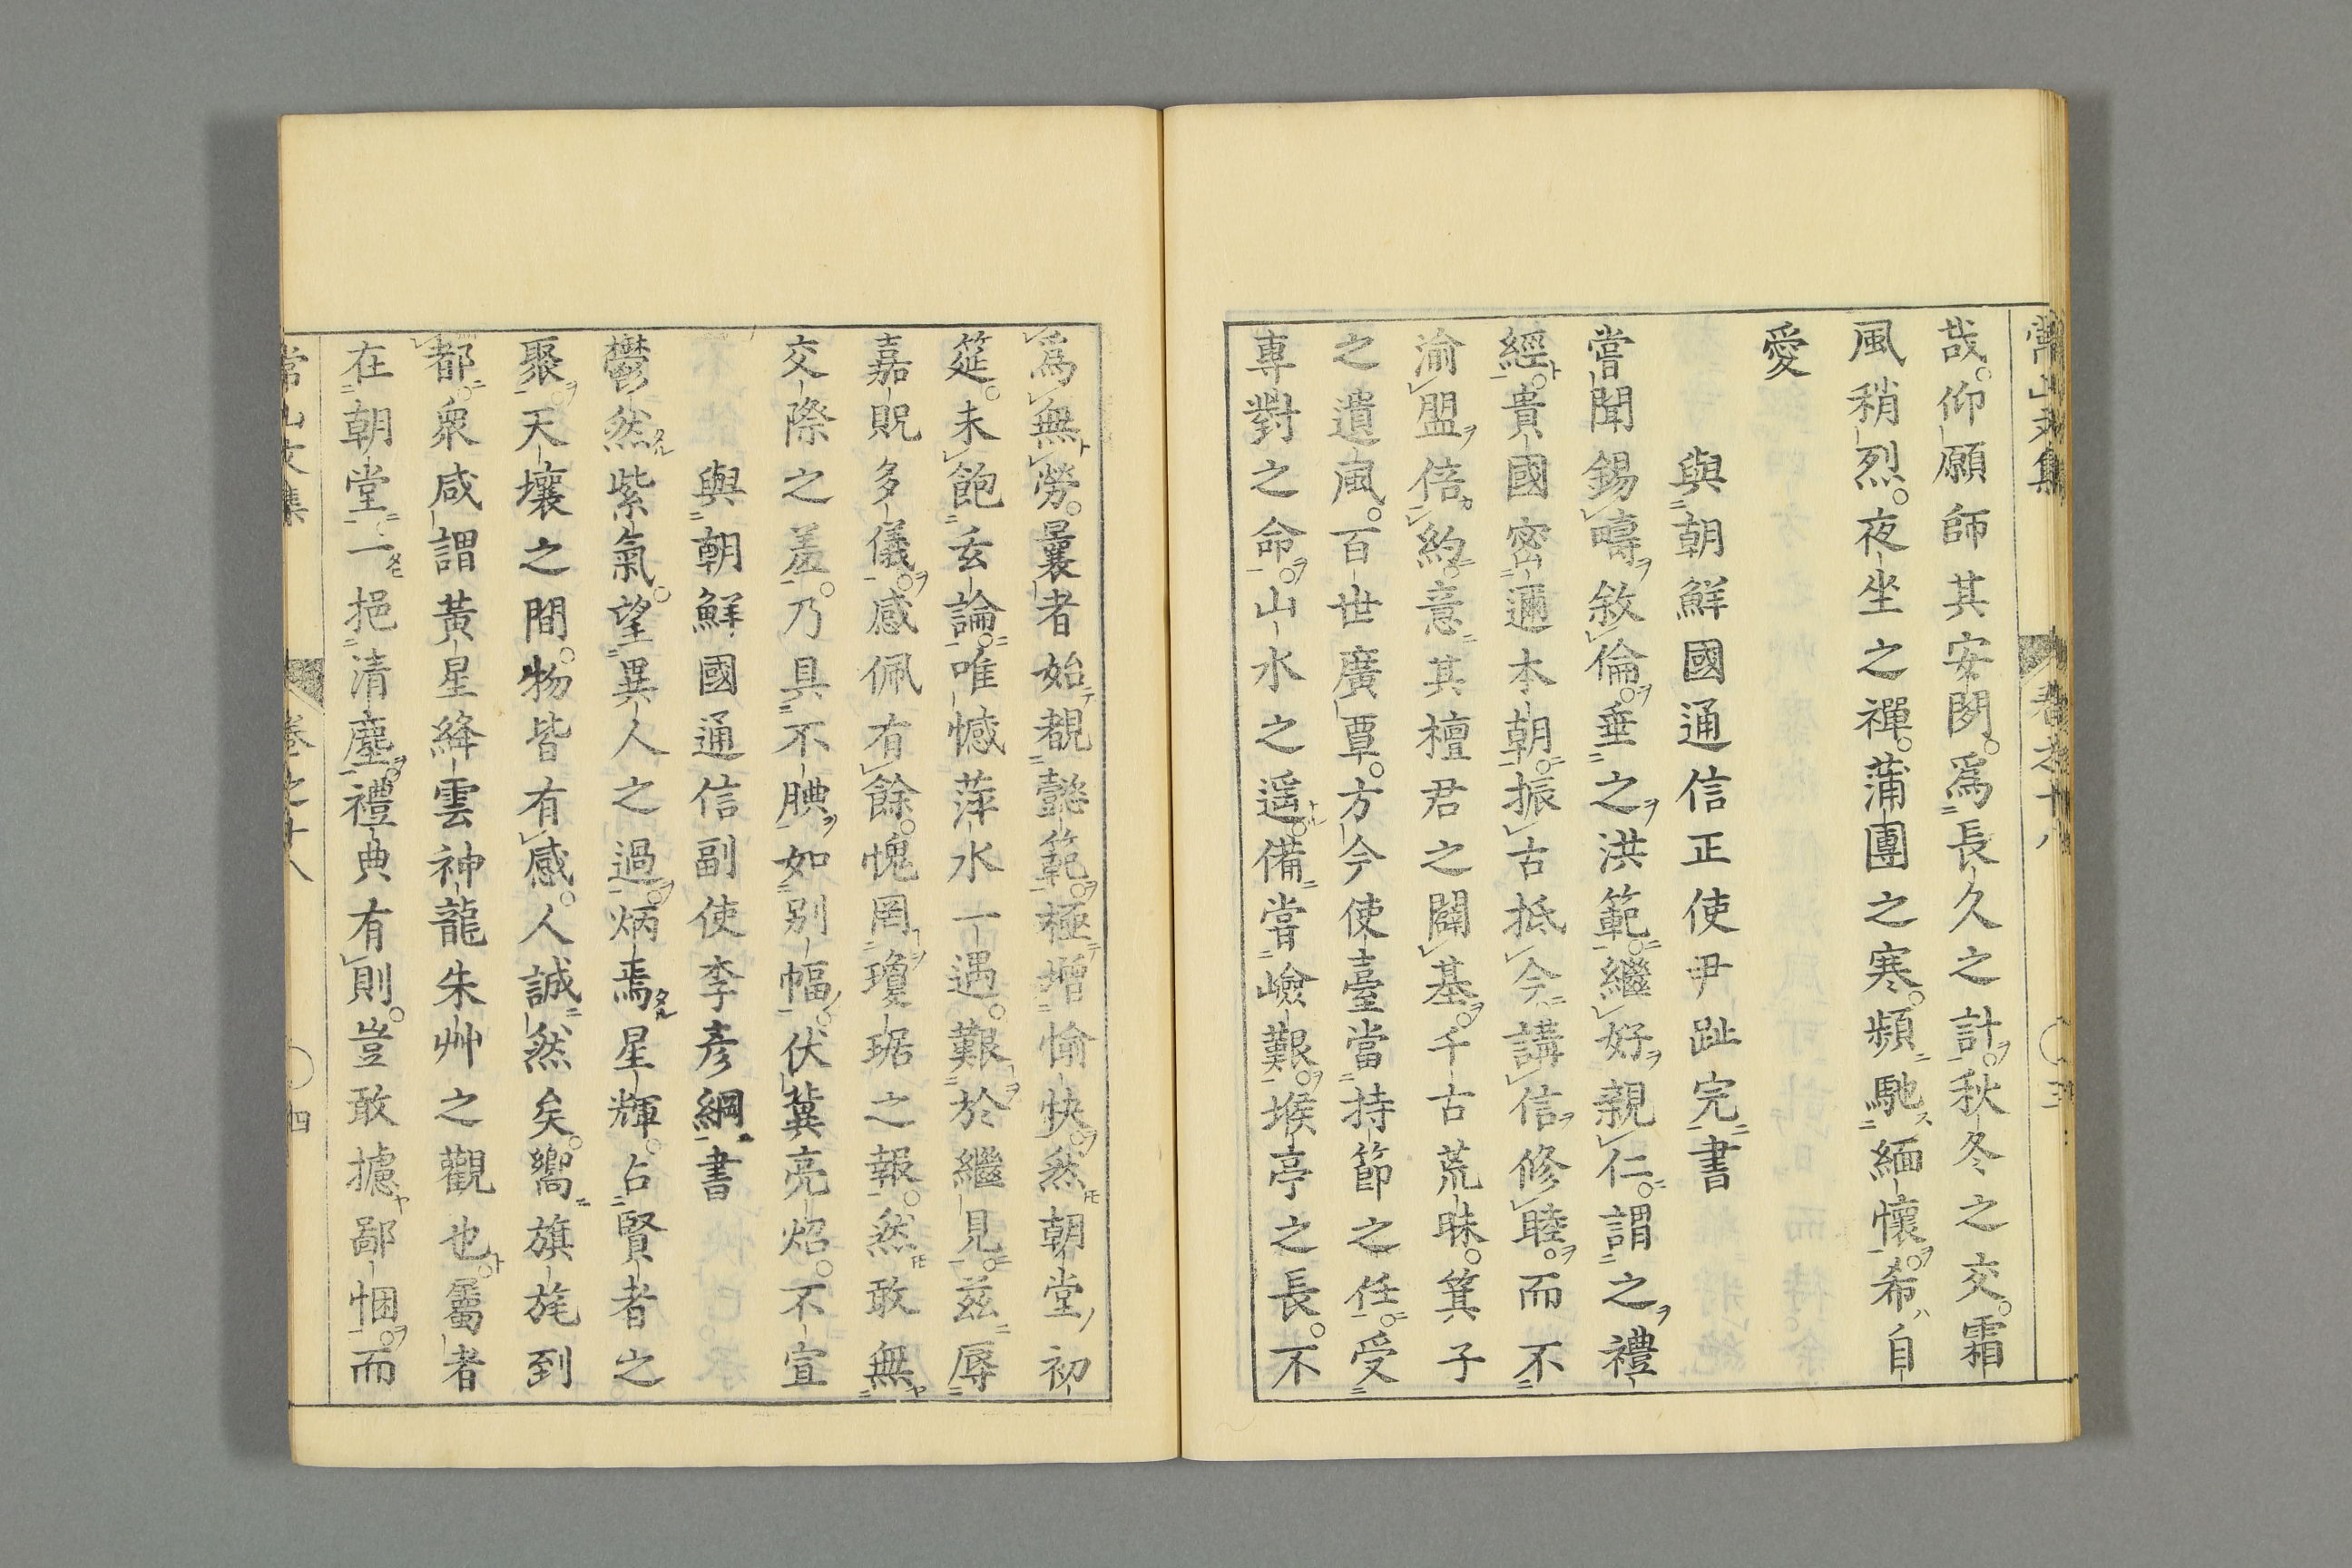 常山文集
卷之十八
三
哉。仰願師其安閑。爲長久之計。秋冬之交。霜
風稍烈。夜坐之禪。蒲團之寒。頻馳緬懷。希自
愛
與朝鮮國通信正使尹趾完書
嘗聞錫疇敘倫。垂之洪範。繼好親仁。謂之禮
經。貴國密邇本朝。振古抵今。講信修睦。而不
渝盟倍約。意其檀君之闢基。千古荒昧。箕子
之遺風。百世廣覃。方今使臺當持節之任。受
專對之命。山水之遥。備嘗嶮艱。堠亭之長。不
爲無勞。曩者始覩懿範。極增愉快。然朝堂初
筵。未飽玄論。唯憾萍水一遇。艱於繼見。茲辱
嘉貺多儀。感佩有餘。愧罔瓊琚之報。然敢無
交際之羞。乃具不腆。如別幅。伏冀亮炤。不宣
與朝鮮國通信副使李彥綱書
鬱然紫氣。望異人之過。炳焉星輝。占賢者之
聚。天壤之間。物皆有感。人誠然矣。嚮旗旄到
都。衆咸謂黃星絳雲神龍朱艸之觀也。屬者
在朝堂。一挹清塵。禮典有則。豈敢攄鄙悃。而
常山文集
卷之十八
四